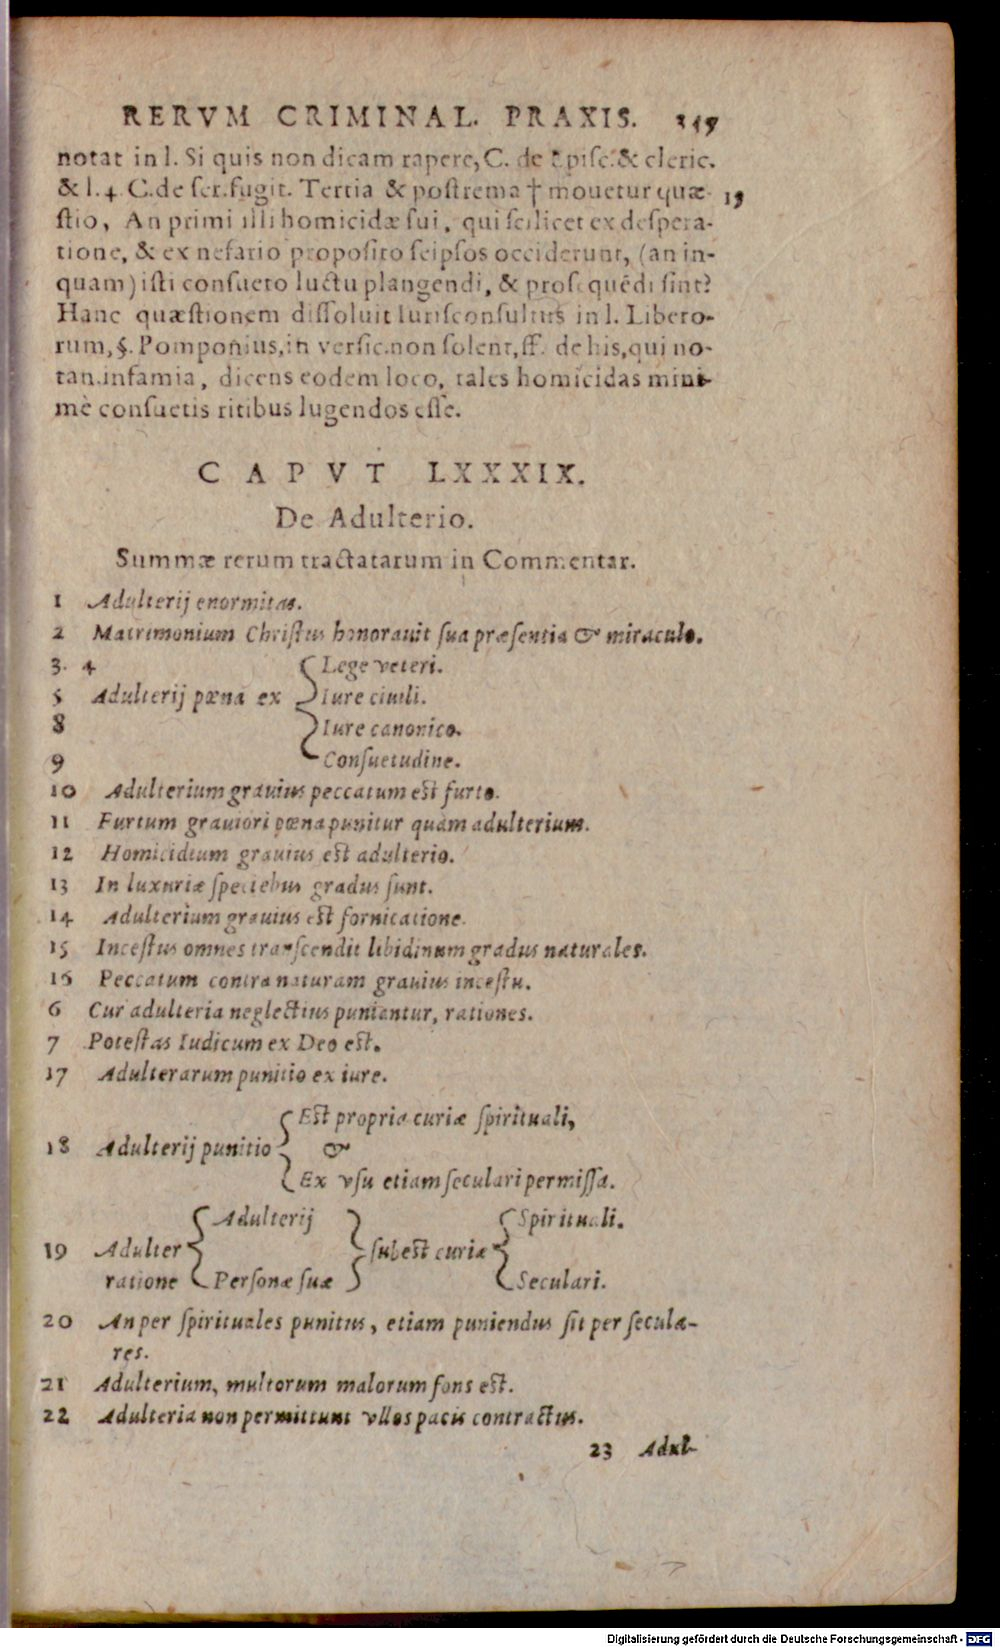 RERVM CRIMINAL. PRAXIS.
notat in l. Si quis non dicam rapere, C. de Episc. & cleric.
& l. 4. C. de ser. fugit. Tertia & postrema † mouetur quæ- 19
stio, An primi illi homicidæ sui, qui scilicet ex despera-
tione, & ex nefario proposito seipsos occiderunt, (an in-
quam) isti consueto luctu plangendi, & prosequēdi sint?
Hanc quæstionem dissoluit Iurisconsultus in l. Libero-
rum, §. Pomponius, in versic. non solent, ff. de his, qui no-
tan. infamia, dicens eodem loco, tales homicidas mini-
mè consuetis ritibus lugendos esse.
CAPVT LXXXIX.
De Adulterio.
Summæ rerum tractatarum in Commentar.
1 Adulterij enormitas.
2 Matrimonium Christus honorauit sua præsentia & miraculo.
3. 4 Lege veteri.
5 Adulterij pœna ex Iure ciuili.
8 Iure canonico.
9 Consuetudine.
10 Adulterium grauius peccatum est furto.
11 Furtum grauiori pœna punitur quàm adulterium.
12 Homicidium grauius est adulterio.
13 In luxuriæ speciebus gradus sunt.
14 Adulterium grauius est fornicatione.
15 Incestus omnes transcendit libidinum gradus naturales.
16 Peccatum contra naturam grauius incestu.
6 Cur adulteria neglectius puniantur, rationes.
7 Potestas Iudicum ex Deo est.
17 Adulterarum punitio ex iure.
Est propria curiæ spirituali,
18 Adulterij punitio &
Ex vsu etiam seculari permissa.
Adulterij Spirituali.
19 Adulter subest curiæ
ratione Personæ suæ Seculari.
20 An per spirituales punitus, etiam puniendus sit per secula-
res.
21 Adulterium, multorum malorum fons est.
22 Adulteria non permittunt vllos pacis contractus.
23 Adul-
Digitalisierung gefördert durch die Deutsche Forschungsgemeinschaft - DFG